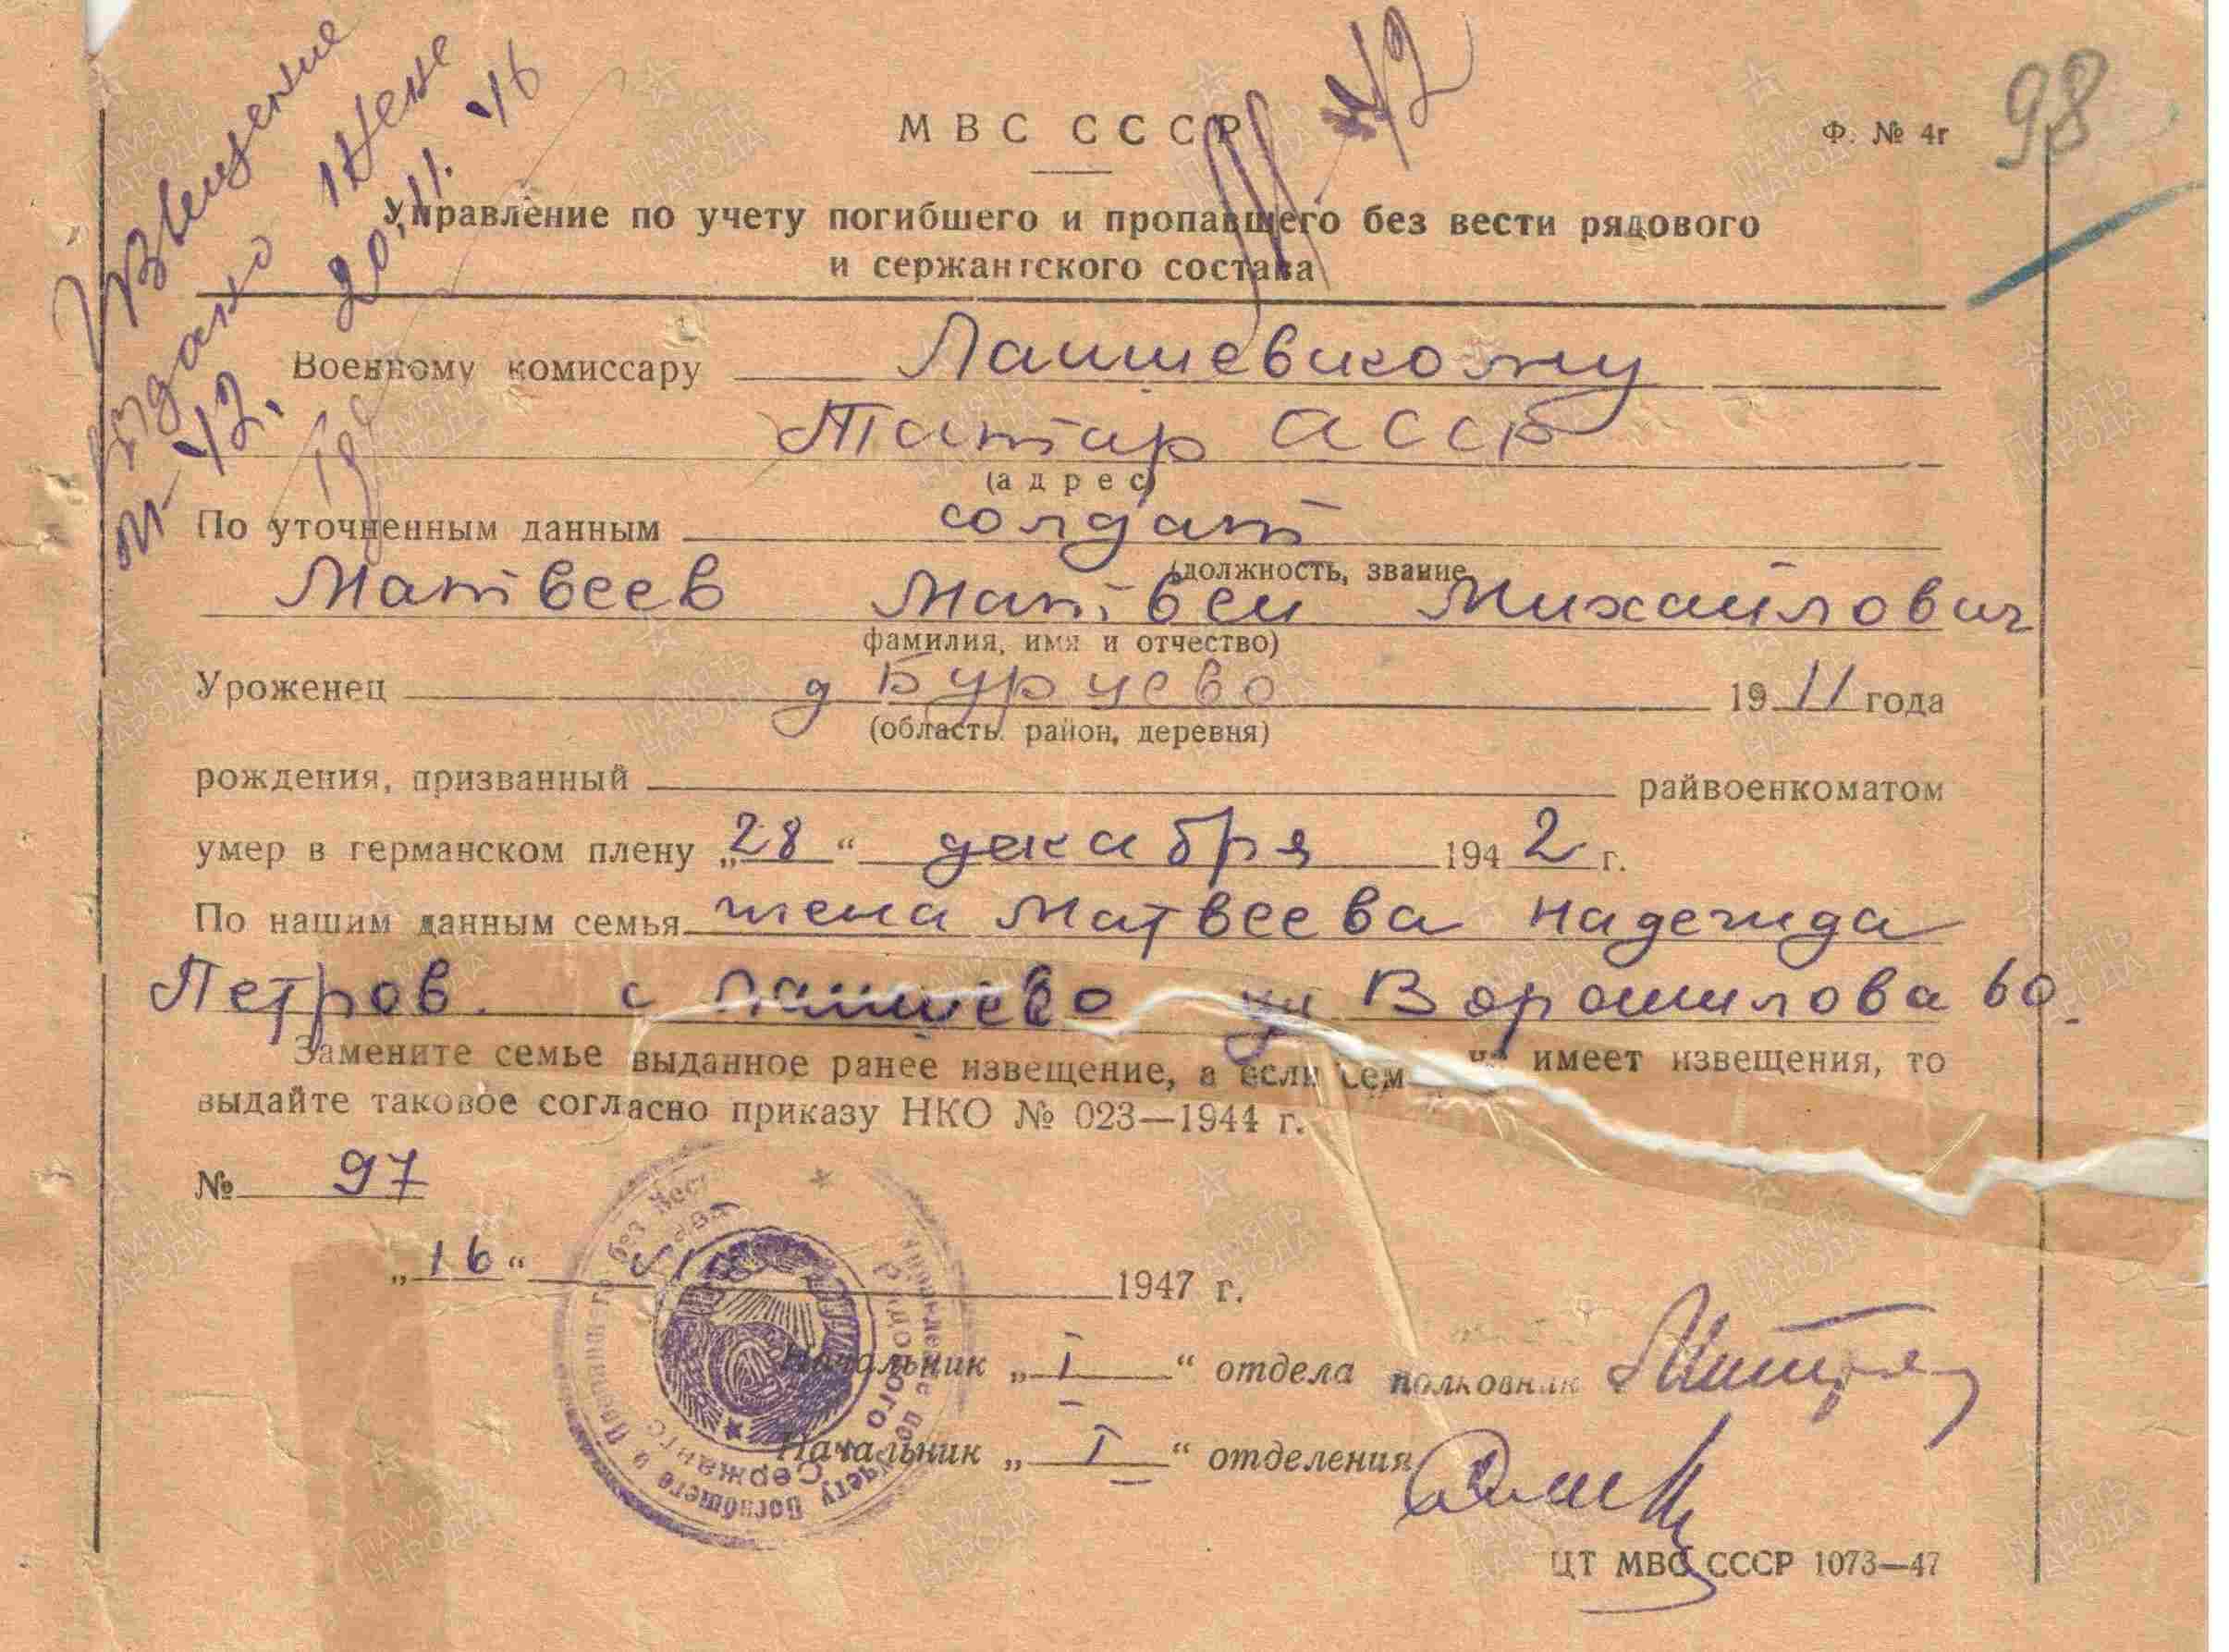 Извещение
выдано жене
20.11. 46
М-42.
4/2
98
МВС СССР
Ф. № 4г
Управление по учету погибшего и пропавшего без вести рядового
и сержантского состава
Военному комиссару Лаишевскому
Татар АССР
(адрес)
По уточненным данным солдат
(должность, звание,
Матвеев Матвеи Михайлович
фамилия, имя и отчество)
Уроженец д Бурчево 1911 года
(область, район, деревня)
рождения, призванный райвоенкоматом
умер в германском плену „28“ декабря 1942 г.
По нашим данным семья жена Матвеева Надежда
Петров. с Лаишево ул Ворошилова 60.
Замените семье выданное ранее извещение, а если сем не имеет извещения, то
выдайте таковое согласно приказу НКО № 023—1944 г.
№ 97
„16“ 1947 г.
Начальник „I“ отдела полковник
Начальник „I“ отделения
ЦТ МВС СССР 1073—47
Управление по учету Погибшего и Пропавшего без вести
Рядового Сержантс
ПАМЯТЬ НАРОДА